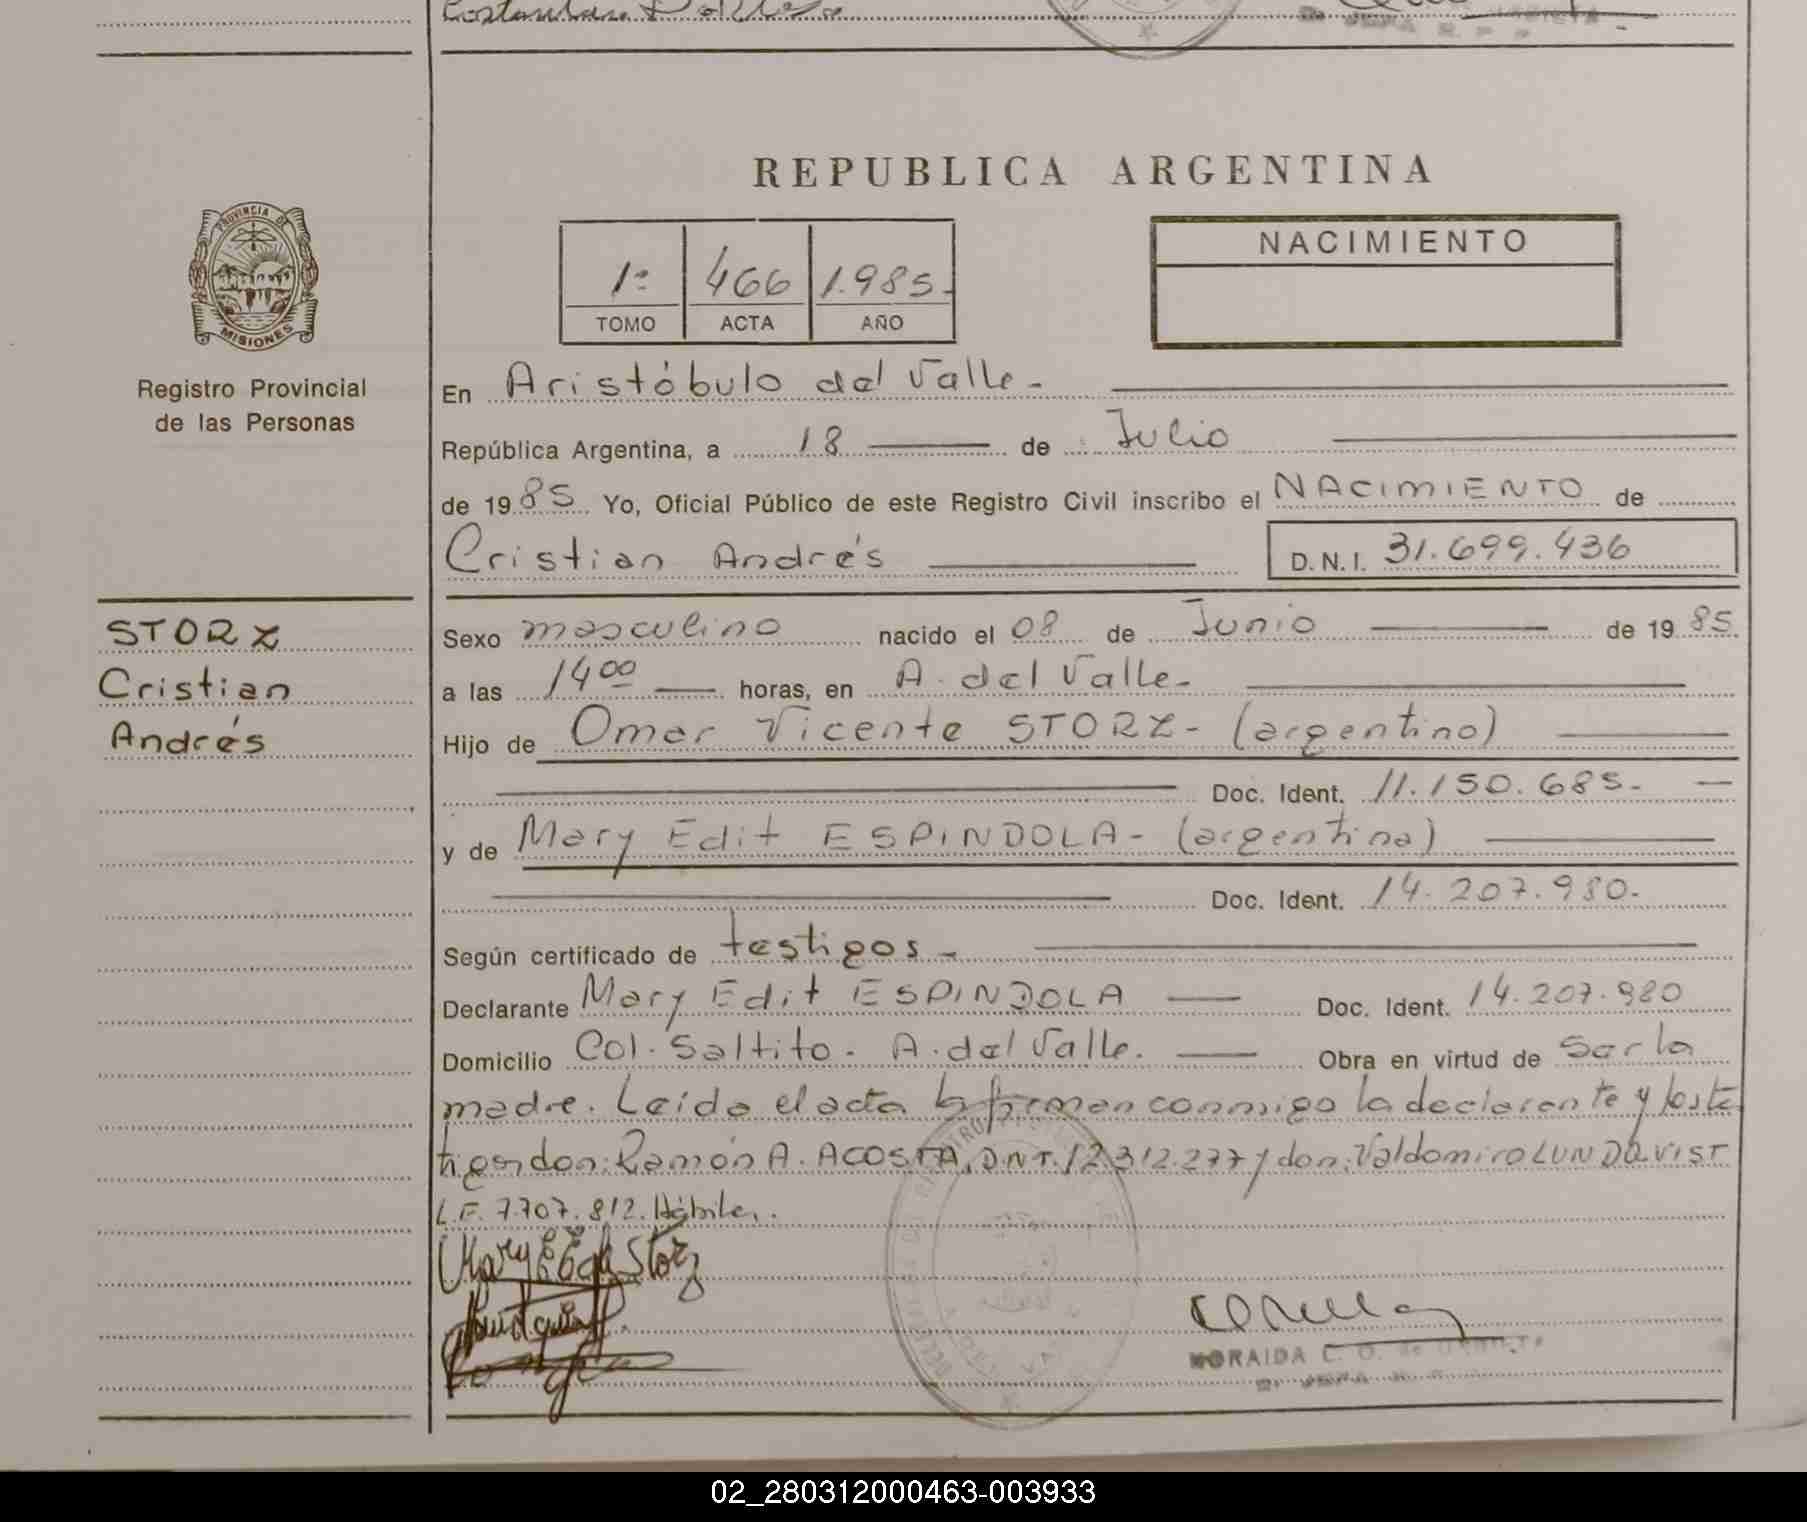 REPUBLICA ARGENTINA
PROVINCIA DE
MISIONES
Registro Provincial
de las Personas
1º 466 1.985.
TOMO ACTA AÑO
NACIMIENTO
En Aristóbulo del Valle.-
República Argentina, a 18 de Julio
de 1985 Yo, Oficial Público de este Registro Civil inscribo el NACIMIENTO de
Cristian Andrés D.N.I. 31.699.436
STORZ
Cristian
Andrés
Sexo masculino nacido el 08 de Junio de 1985.
a las 14 00 horas, en A. del Valle.-
Hijo de Omar Vicente STORZ- (argentino)
Doc. Ident. 11.150.685.-
y de Mary Edit ESPINDOLA- (argentina)
Doc. Ident. 14.207.980.
Según certificado de testigos.-
Declarante Mary Edit ESPINDOLA Doc. Ident. 14.207.980
Domicilio Col. Saltito. A. del Valle. Obra en virtud de ser la
madre. Leída el acta la firman conmigo la declarante y los te
tigos don: Ramón A. ACOSTA, D.N.I. 12.312.277 y don: Valdomiro LUNDQVIST
L.E. 7.707.812. Hábiles.
Mary E E de Storz
MORAIDA C. O. de
02_280312000463-003933